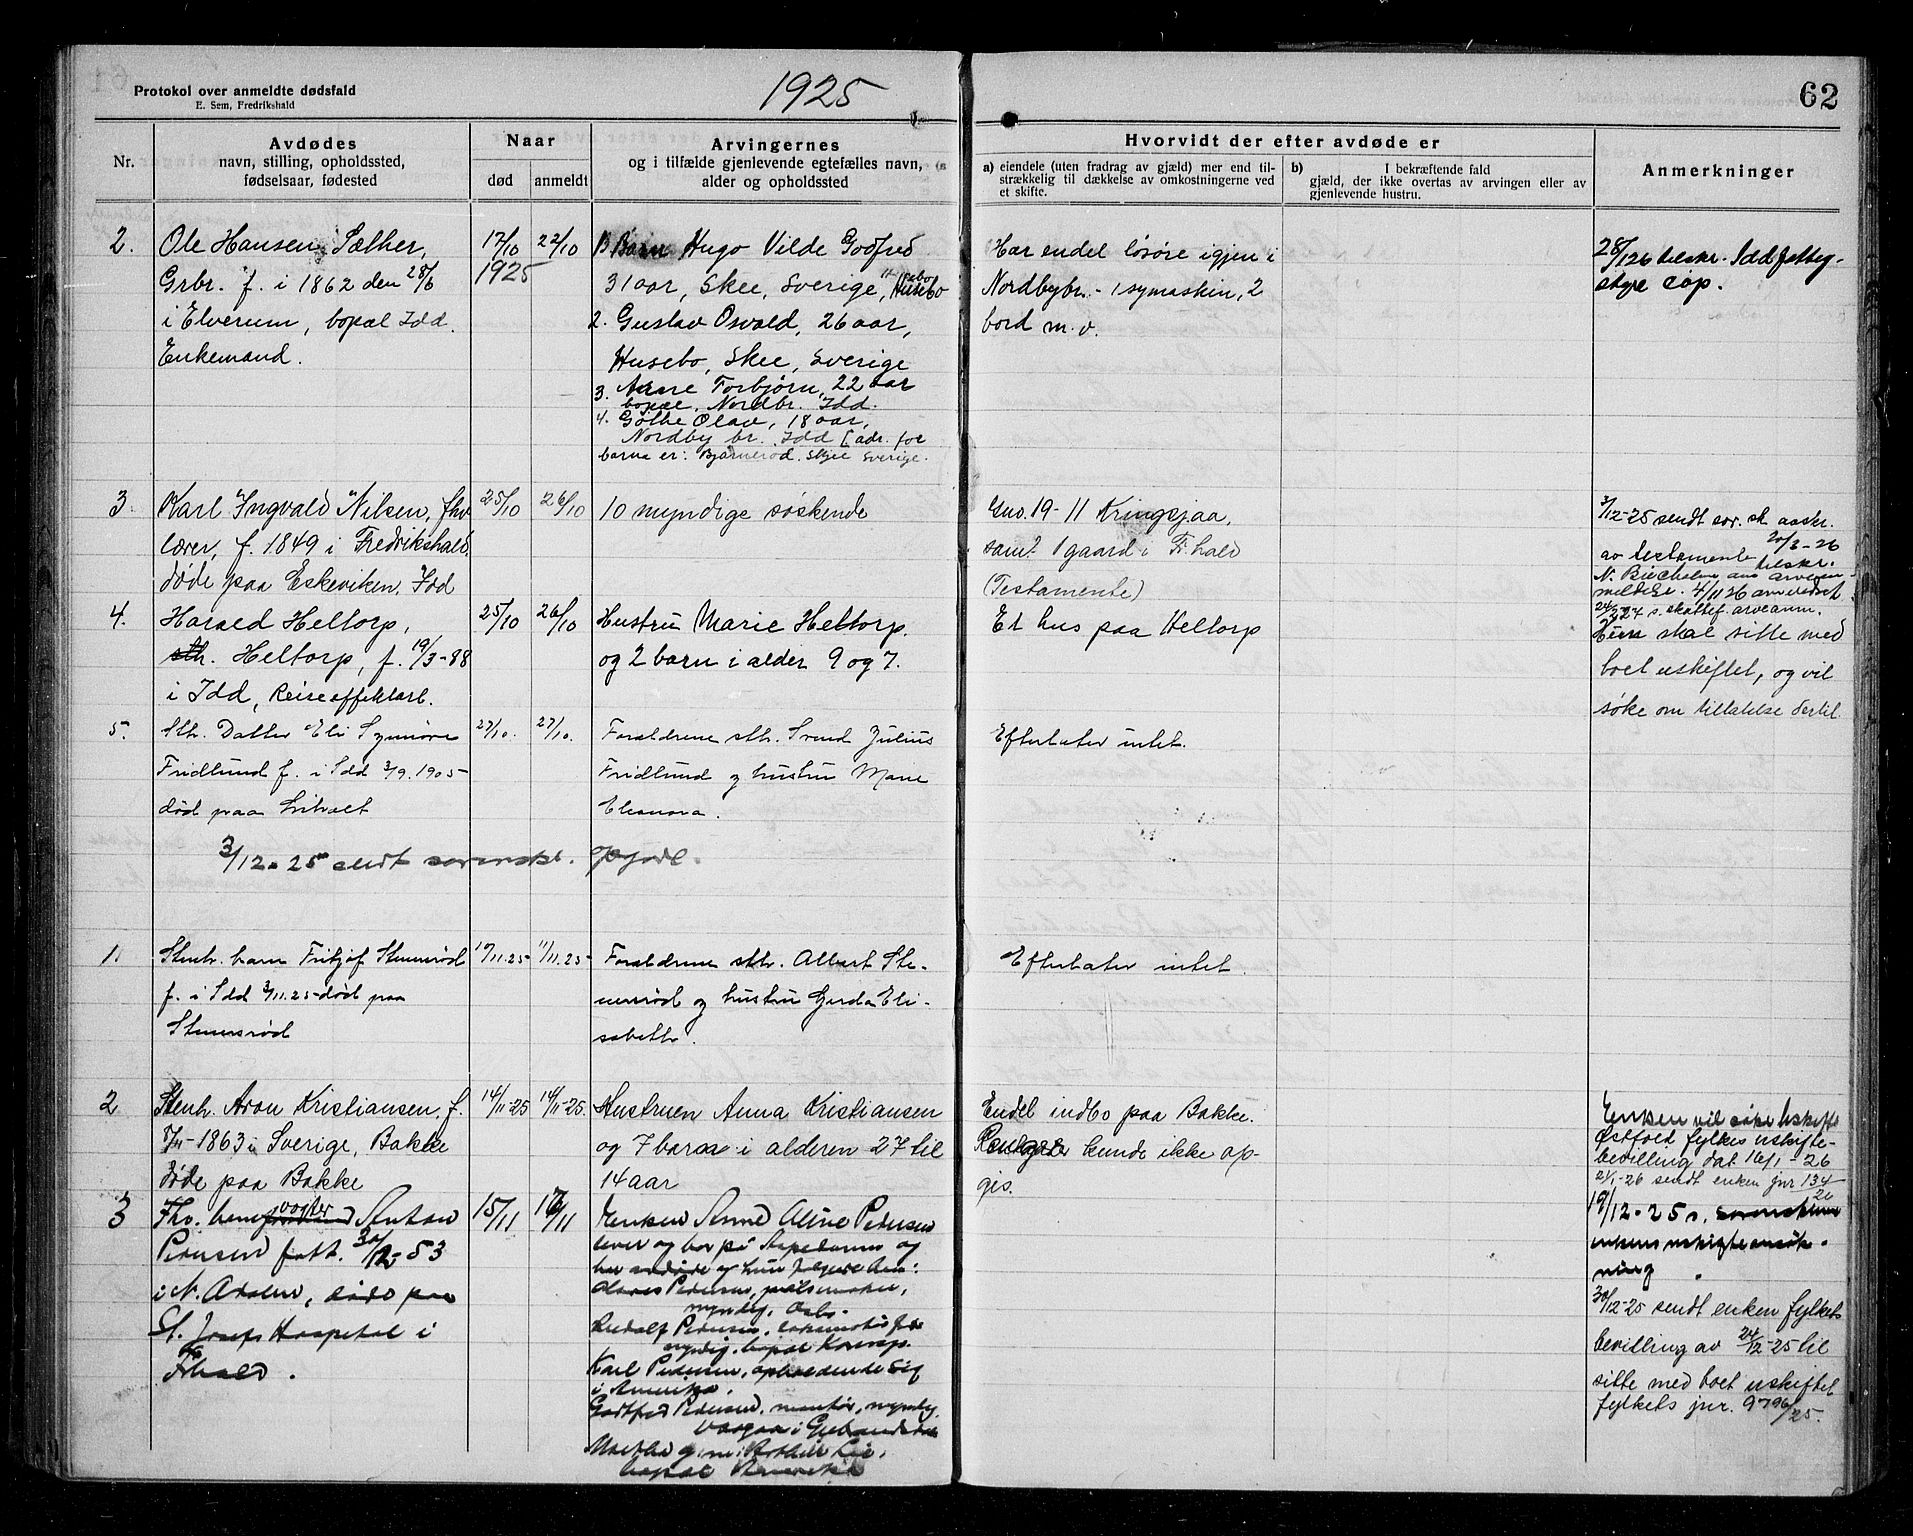 Protokol over anmeldte dødsfald
E. Sem, Fredrikshald
1925
62
Nr.
Avdødes
navn, stilling, opholdssted,
fødselsaar, fødested
Naar
død
anmeldt
Arvingernes
og i tilfælde gjenlevende egtefælles navn,
alder og opholdssted
Hvorvidt der efter avdøde er
a) eiendele (uten fradrag av gjæld) mer end til-
strækkelig til dækkelse av omkostningerne ved
et skifte.
b) I bekræftende fald
gjæld, der ikke overtas av arvingen eller av
gjenlevende hustru.
Anmerkninger
2.
Ole Hansen Sæther,
Grbr. f. i 1862 den 28/6
i Elverum, bopæl Idd.
Enkemand.
17/10
22/10
1925
Barn Hugo Vilde Godfred
31 aar, Skee, Sverige, Husebo
2. Gustav Osvald, 26 aar,
Husebo, Skee, Sverige
3. Arne Torbjørn, 22 aar
bopæl, Nordbr. Idd.
4. Gøthe Olav, 18 aar,
Nordby br. Idd [adr. for
barna er: Bjørnerød. Skjee Sverige.
Har endel løsøre igjen i
Nordbybr. - 1 symaskin, 2
bord m.v.
28/1 26 tilskr. Idd fattig-
styre cop.
3.
Karl Ingvald Nilsen, fhv
lærer, f. 1849 i Fredrikshald,
døde paa Eskeviken, Idd
25/10
26/10
10 myndige søskende
Gno. 19-11 Kringsjaa,
samt 1 gaard i Fr.hald
(Testamente)
3/12-25 sendt sor.sk avskr.
av testamente 20/3-26 tilskr.
meldelse. 4/11 26
s. skattef. arveanm.
4.
Harald Heltorp,
sth. Heltorp, f. 19/3-88
i Idd, Reiseeffektarb.
25/10
26/10
Hustru Marie Heltorp.
og 2 barn i alder 9 og 7.
Et hus paa Heltorp
Hun skal sitte med
boet uskiftet, og vil
søke om tillatelse dertil.
5.
Sth. Datter Eli Synnøve
Fridlund f. i Idd 3/9.1905-
død paa
27/10.
27/10.
Forældrene sth. Svend Julius
Fridlund og hustru Marie
Eleonora.
Efterlater intet.
3/12-25 sendt sorenskr. opgave.
1.
Stenh. barn Fritjof Stumsrød
f. i Idd 3/11.25- død paa
Stumsrød
10/11.25-
11/11.25-
Forældrene sth. Albert Stu-
msrød og hustru Gerda Eli-
sabeth.
Efterlater intet.
2
Stenh. Aron Kristiansen, f.
1863 i Sverige, Bakke
døde paa Bakke
14/11-25
14/11-25.
Hustruen Anna Kristiansen
og 7 barn i alderen 27 til
14 aar
Endel indbo paa Bakke.
kunde ikke op-
gis.
Enken vil søke uskifte
Østfold fylkes uskifte-
bevilling dat 16/1-26
21/1-26 sendt enken jnr 134/26
3
Fhv. banevogter Anton
Pedersen født 30/12-53
døde paa
St. Josefs Hospital i
Fhald.
15/11
17/11
Enken Anne Oline Pedersen
lever og bor på
og
Pedersen, pølsemaker,
myndig, Oslo.
Rudolf Pedersen,
myndig, bopæl
Karl Pedersen, opholdende sig
i Amerika.
Godtfred Pedersen, montør, myndig
bopæl Amerika
19/12-25 s.
enkens uskifteansøk-
ning.
30/12-25 sendt enken fylkets
bevilling av 24/12-25 til
sitte med boet uskiftet
fylkets jnr. 9796/25.